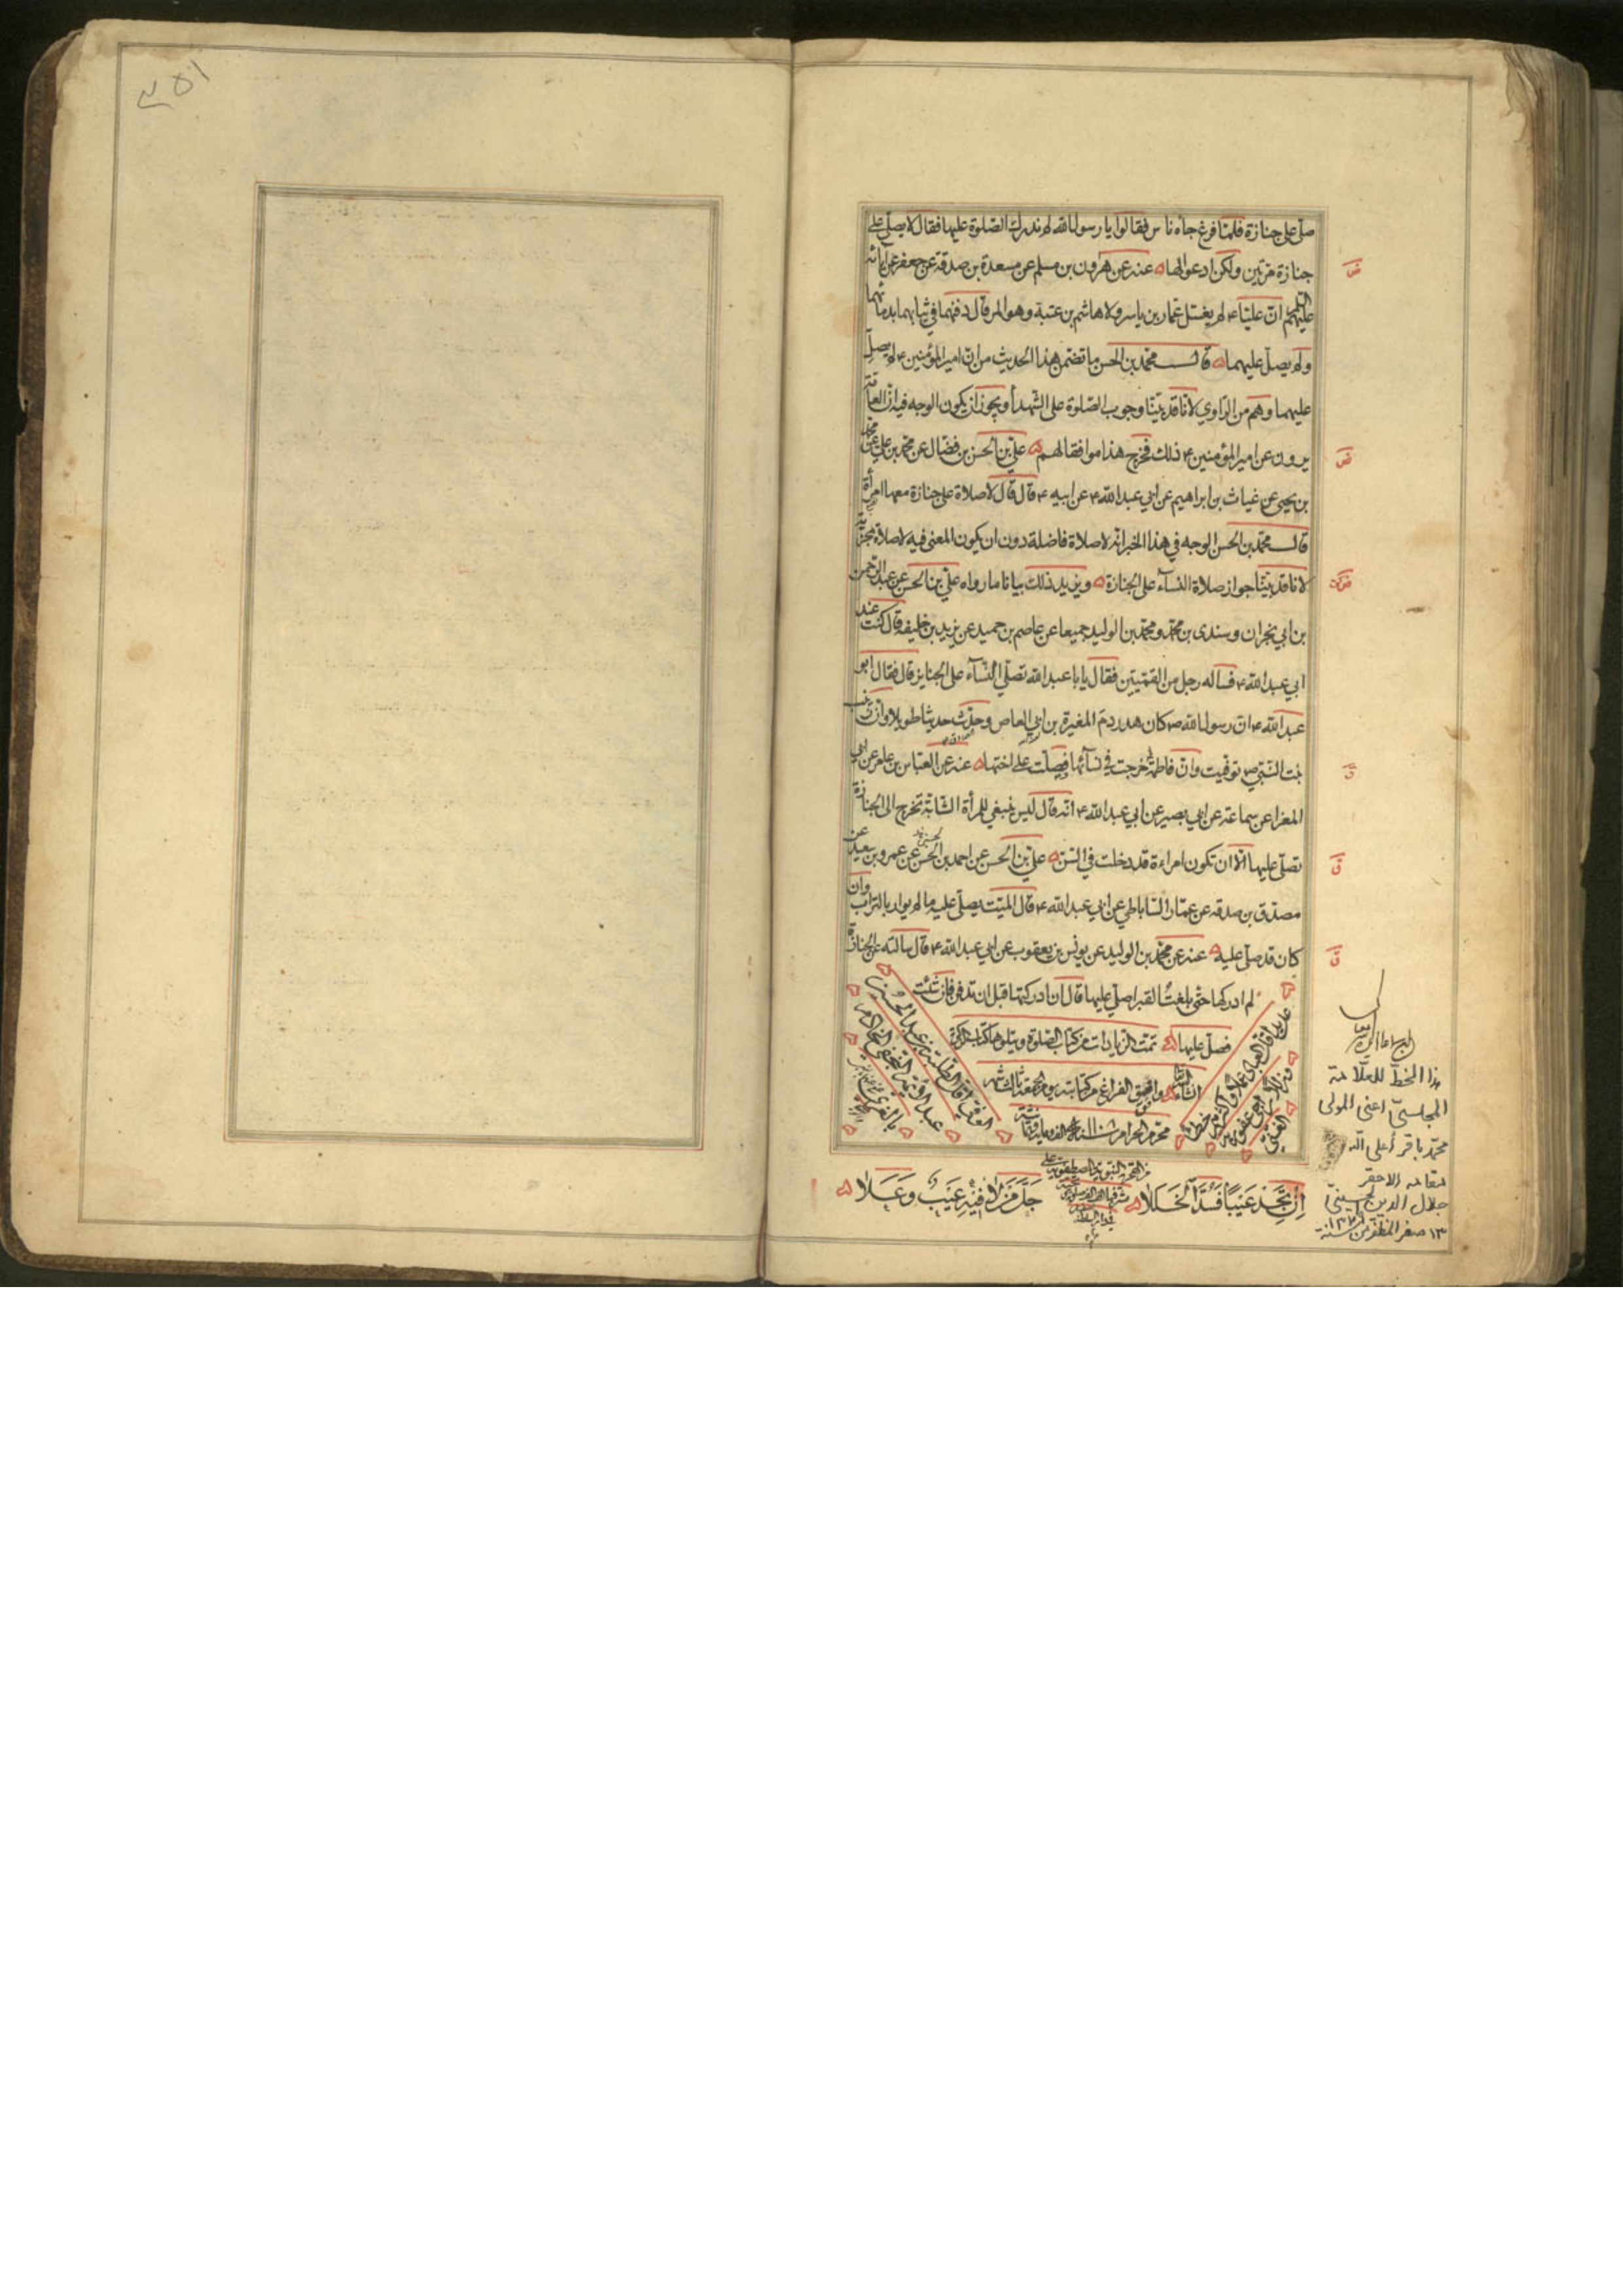 صلى على جنازة فلمّا فرغ جاءه ناس فقالوا يا رسول الله لم ندرك الصّلوة عليها فقال لا يصلّى على
جنازة مرّتين ولكن ادعوا لها عنه عن هرون بن مسلم عن مسعدة بن صدقة عن جعفر عن آبائه
عليهم السّلم انّ عليّا ع لم يغسّل عمّار بن ياسر ولا هاشم بن عتبة وهو المرقال دفنهما في ثيابهما بدمائهما
ولم يصلّ عليهما قال محمّد بن الحسن ما تضمن هذا الحديث من انّ امير المؤمنين ع لم يصلّ
عليهما وهم من الرّاوي لانّا قد بيّنّا وجوب الصّلوة على الشهدآء ويجوز ان يكون الوجه فيه انّ العامّة
يروون عن امير المؤمنين ع ذلك فخرج هذا موافقا لهم علىّ بن الحسن بن فضّال عن محمّد بن علي عن محمّد
بن يحيى عن غياث بن ابراهيم عن ابي عبد الله ع عن ابيه ع قال قال لا صلاة على جنازة معها امرأة
قال محمّد بن الحسن الوجه في هذا الخبر انّه لا صلاة فاضلة دون ان يكون المعنى فيه لا صلاة مجزية
لانّا قد بيّنّا جواز صلاة النسآء على الجنازة ويزيد ذلك بيانا ما رواه علىّ بن الحسن عن عبد الرّحمن
بن ابي نجران وسندى بن محمّد ومحمّد بن الوليد جميعا عن عاصم بن حميد عن يزيد بن خليفة قال كنت عند
ابي عبد الله ع فساله رجل من القمّيّين فقال يا با عبد الله تصلّي النّسآء على الجنايز قال فقال ابو
عبد الله ع ان رسول الله ص كان هدر دم المغيرة بن ابي العاص وحدّث حديثا طويلا وانّ زينب
بنت النّبي ص توفيت وانّ فاطمة خرجت في نسآئها فصلّت على اختها عنه عن العبّاس بن عامر عن ابي
المغرا عن سماعة عن ابي بصير عن ابي عبد الله ع انّه قال ليس ينبغي للمرأة الشّابّة تخرج الى الجنازة
تصلّى عليها الّا ان تكون امراءة قد دخلت في السّن علىّ بن الحسن عن احمد بن الحسن عن عمرو بن سعيد عن
مصدّق بن صدقة عن عمّار السّاباطي عن ابي عبد الله ع قال الميّت يصلّى عليه ما لم يوار بالتراب وان
كان قد صلّى عليه عنه عن محمّد بن الوليد عن يونس بن يعقوب عن ابي عبد الله ع قال سالته عن الجنازة
لم ادركها حتى بلغتُ القبر اصلّي عليها قال ان ادركتها قبل ان تدفن فان شئت
فصلّ عليها تمّت الزيادات من كتاب الصّلوة ويتلوها كتاب الزكوة
ان شاء الله واتّفق الفراغ من كتابته يوم الجمعة ثالث شهر
محرّم الحرام
ان تجد عيبا فسدّ الخللا
جلّ من لا فيه عيب وعلا
هذا الخطّ للعلّامة
المجلسيّ اعني المولى
محمّد باقر أعلى الله
مقامه الاحقر
جلال الدين الحسينيّ
١٣ صفر المظفر من سنة
٣٥١